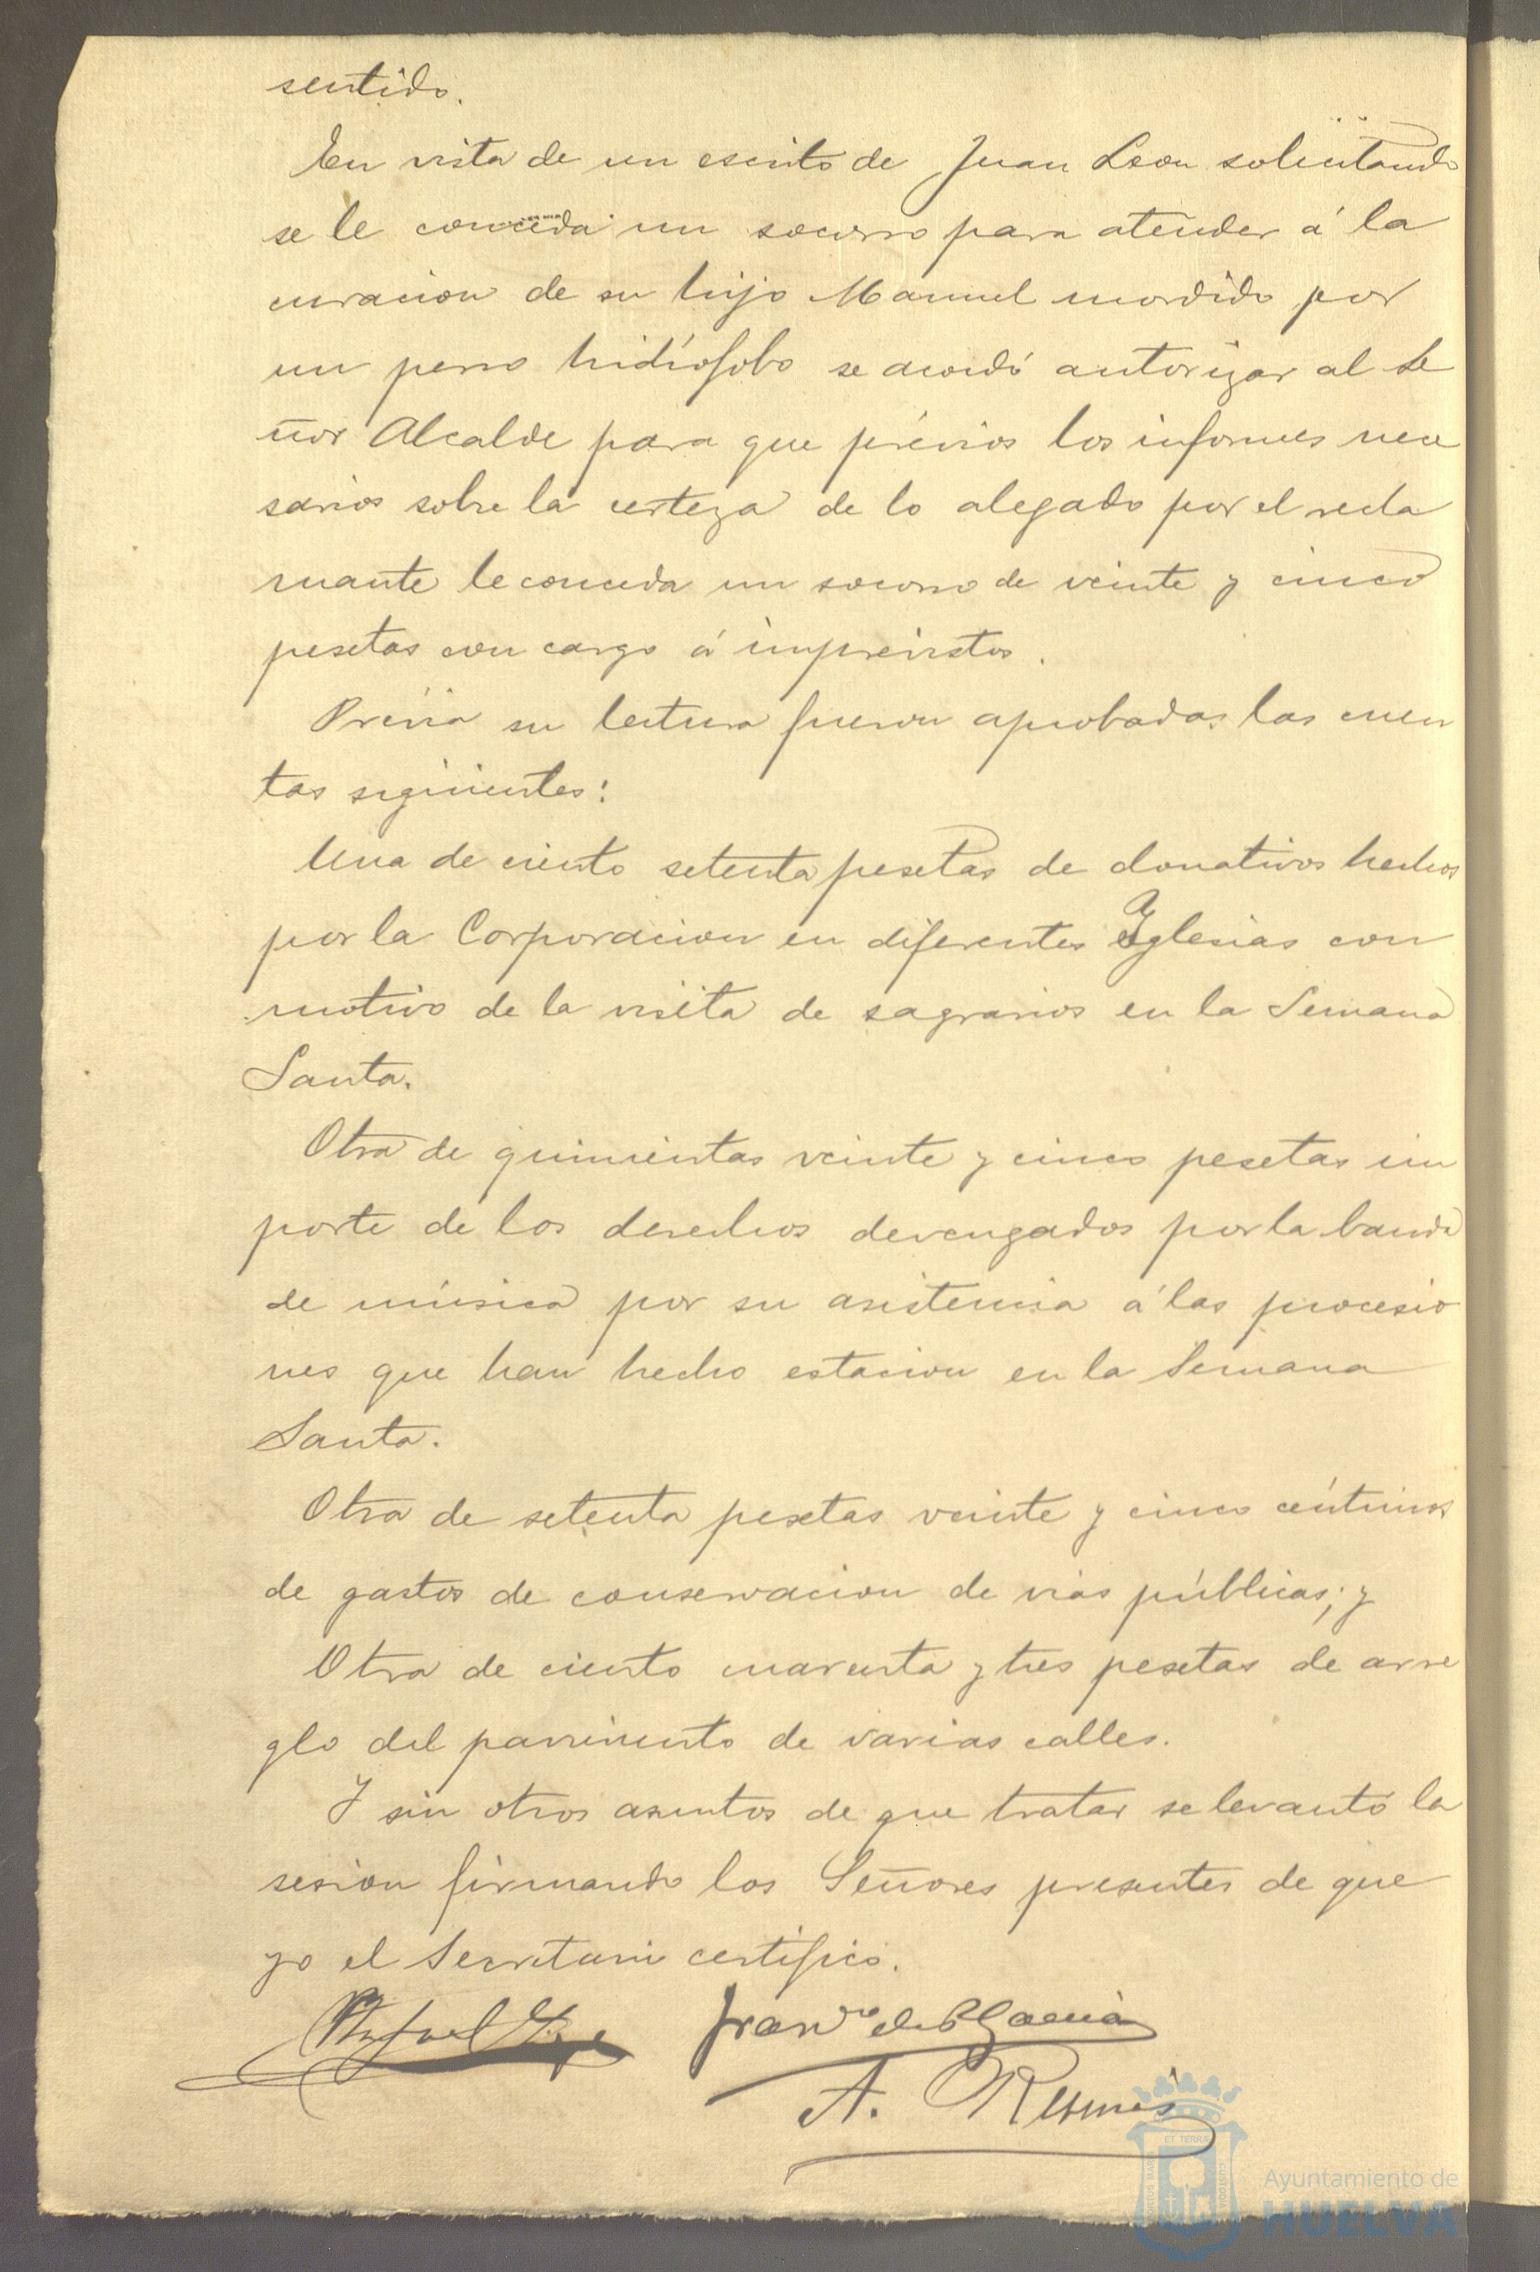 sentido.
En vista de un escrito de Juan Leon solicitando
se le conceda un socorro para atender á la
curacion de su hijo Manuel mordido por
un perro hidrófobo se acordó autorizar al Se
ñor Alcalde para que prévios los informes nece
sarios sobre la certeza de lo alegado por el recla
mante le conceda un socorro de veinte y cinco
pesetas con cargo á imprevistos.
Prévia su lectura fueron aprobadas las cuen
tas siguientes:
Una de ciento setenta pesetas de donativos hechos
por la Corporacion en diferentes Yglesias con
motivo de la visita de sagrarios en la Semana
Santa.
Otra de quinientas veinte y cinco pesetas im
porte de los derechos devengados por la banda
de música por su asistencia á las procesio
nes que han hecho estacion en la Semana
Santa.
Otra de setenta pesetas veinte y cinco céntimos
de gastos de conservacion de vias públicas; y
Otra de ciento cuarenta y tres pesetas de arre
glo del pavimento de varias calles.
Y sin otros asuntos de que tratar se levantó la
sesion firmando los Señores presentes de que
yo el Secretario certifico.
Rafael
Franco de P García
A.
ET TERRA
Ayuntamiento de
HUELVA